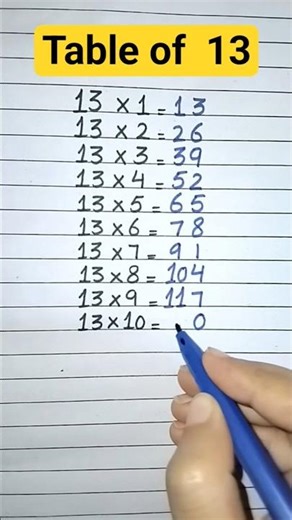 Table of 13
13 × 1 = 13
13 × 2 = 26
13 × 3 = 39
13 × 4 = 52
13 × 5 = 65
13 × 6 = 78
13 × 7 = 91
13 × 8 = 104
13 × 9 = 117
13 × 10 = 0